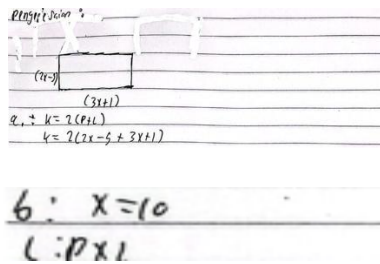 Penyelesaian :
(2x-5)
(3x+1)
a. : k = 2(p+l)
k = 2(2x-5 + 3x+1)
b : x = 10
c : p x l